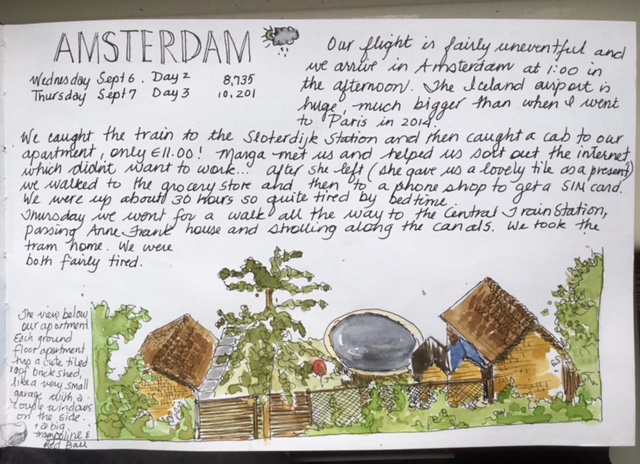 AMSTERDAM
Wednesday Sept 6. Day 2 8,735
Thursday Sept 7 Day 3 10,201
Our flight is fairly uneventful and
we arrive in Amsterdam at 1:00 in
the afternoon. The Iceland airport is
huge, much bigger than when I went
to Paris in 2014.
We caught the train to the Sloterdijk Station and then caught a cab to our
apartment, only €11.00! Marga met us and helped us sort out the internet,
which didn't want to work... after she left (she gave us a lovely tile as a present)
we walked to the grocery store and then to a phone shop to get a SIM card.
We were up about 30 hours so quite tired by bedtime.
Thursday we went for a walk all the way to the Central Train Station,
passing Anne Frank house and strolling along the canals. We took the
tram home. We were
both fairly tired.
The view below
our apartment
Each ground
floor apartment
has a cute tiled
roof brick shed,
like a very small
garage with a
couple windows
on the side.
+ a big
trampoline &
Red Ball